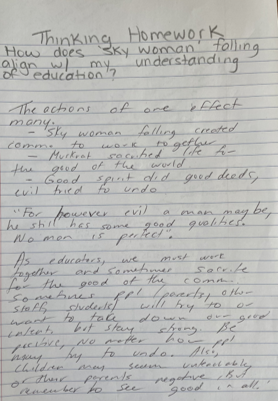 Thinking Homework
How does "Sky Woman" falling
align w/ my understanding
of education?
The actions of one effect
many.
- Sky woman falling created
comm. to work together
- Muskrat sacrificed life for
the good of the world
- Good spirit did good deeds,
evil tried to undo
"For however evil a man may be,
he still has some good qualities.
No man is perfect".
As educators, we must work
together and sometimes sacrifice
for the good of the comm.
Sometimes ppl, parents, other
staff, students, will try to or
want to take down our good
intent, but stay strong. Be
positive, no matter how ppl
may try to undo. Also,
children may seem unteachable,
or their parents negative, but
remember to see good in all."